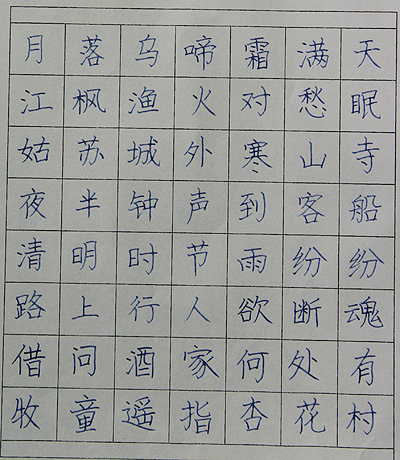 月落乌啼霜满天
江枫渔火对愁眠
姑苏城外寒山寺
夜半钟声到客船
清明时节雨纷纷
路上行人欲断魂
借问酒家何处有
牧童遥指杏花村